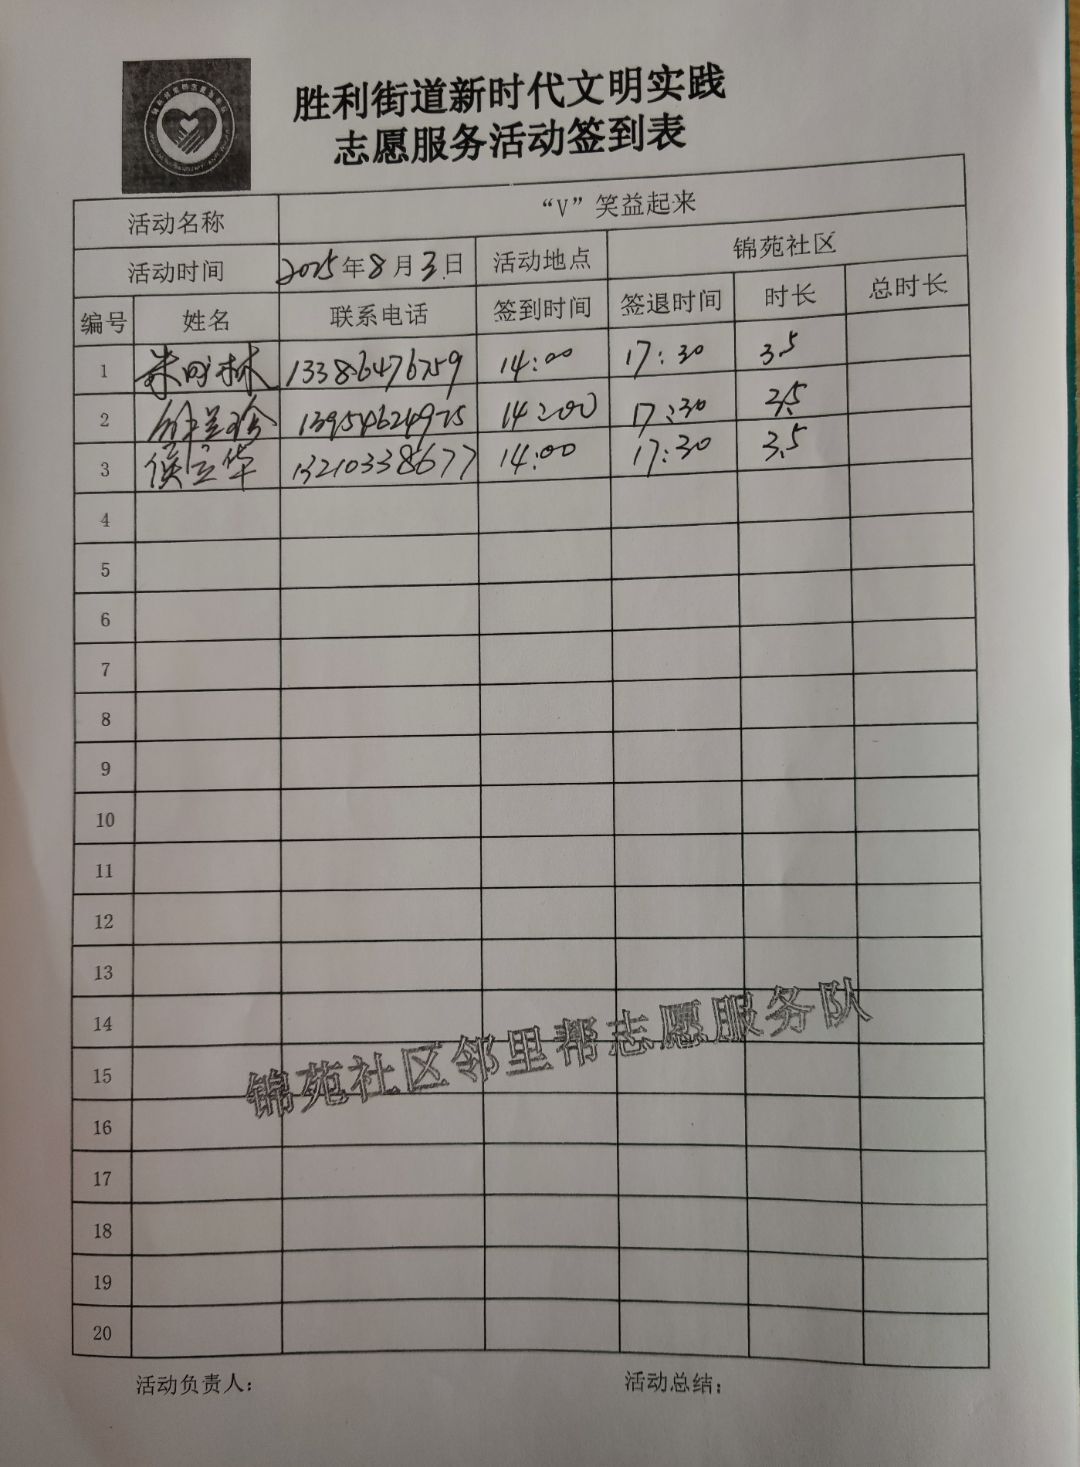 胜利街道新时代文明实践
志愿服务活动签到表
活动名称 “V”笑益起来
活动时间 2025年8月3日 活动地点 锦苑社区
编号 姓名 联系电话 签到时间 签退时间 时长 总时长
1 13386476759 14:00 17:30 3.5
2 14:00 17:30 3.5
3 侯立华 13210338677 14:00 17:30 3.5
4
5
6
7
8
9
10
11
12
13
14
15
16
17
18
19
20
锦苑社区邻里帮志愿服务队
活动负责人: 活动总结: